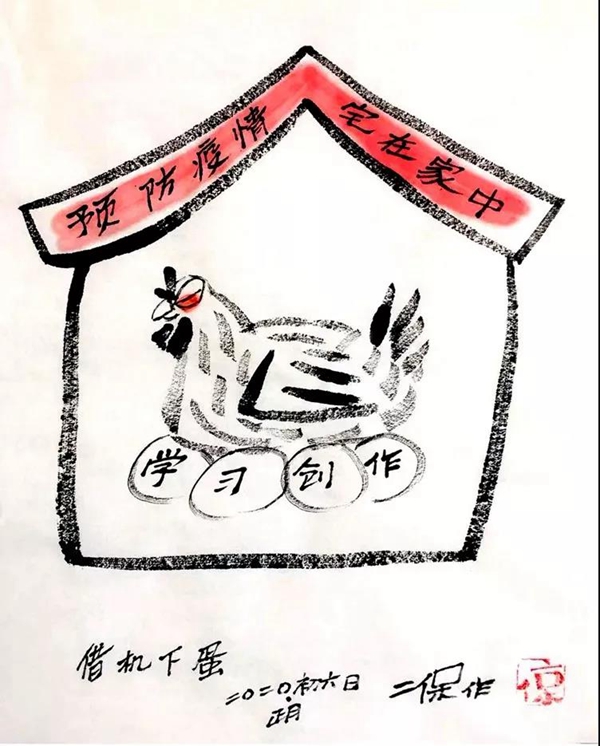 预防疫情 宅在家中
学习创作
借机下蛋
二〇二〇初六日
正月
二保作